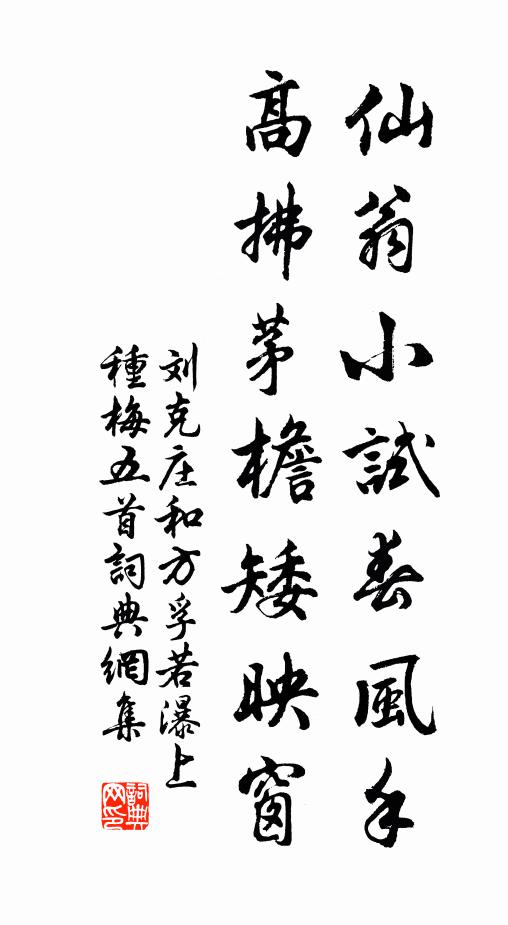 仙翁小試春風手
高拂茅檐矮映窗
刘克庄和方孚若瀑上
種梅五首詞典網集
詞典
网印